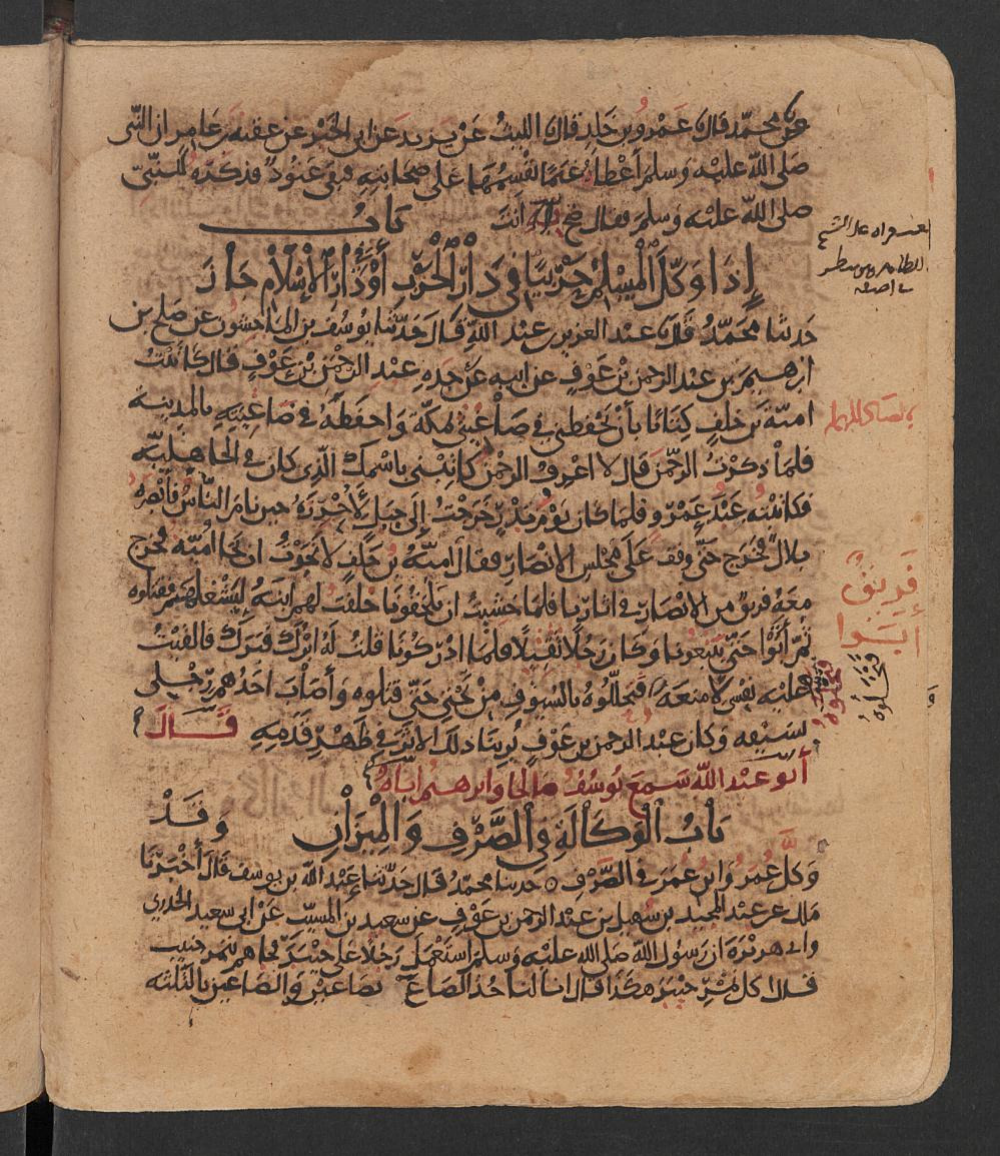 محمد قال عمرو بن خلد قال الليث عن يزيد عن ابي الخير عن عقبه بن عامر ان النبي
صلى الله عليه وسلم أعطاه غنما يقسمها على صحابته فبقي عتود فذكره للنبي
صلى الله عليه وسلم فقال ضح به انت باب
إذا وكل المسلم حربيا في دار الحرب أو دار الإسلام جاز
حدثنا محمد قال عبد العزيز بن عبد الله قال حدثنا يوسف بن الماجشون عن صلح بن
ابرهيم بن عبد الرحمن بن عوف عن ابيه عن جده عبد الرحمن بن عوف قال كاتبت
امية بن خلف كتابا بأن يحفظني في صاغيتي بمكة واحفظه في صاغيته بالمدينه
فلما ذكرت الرحمن قال لا اعرف الرحمن كاتبني باسمك الذي كان في الجاهلية
فكاتبته عبد عمرو فلما كان يوم بدر خرجت إلى جبل لأحرزه حين نام الناس فأبصره
بلال فخرج حتى وقف على مجلس الانصار فقال امية بن خلف لا نجوت ان نجا امية فخرج
معه فريق من الانصار في اثارنا فلما خشيت ان يلحقونا خلفت لهم ابنه ليشغلهم فقتلوه
ثم أتوا حتى يتبعونا وكان رجلا ثقيلا فلما ادركونا قلت له ابرك فبرك فالقيت
عليه نفسي لامنعه فتجللوه بالسيوف من تحتي حتى قتلوه وأصاب احدهم رجلي
بسيفه وكان عبد الرحمن بن عوف يرينا ذلك الاثر في ظهر قدمه قال
أبو عبد الله سمع يوسف صالحا وابرهيم اباه
باب الوكالة في الصرف والميزان وقد
وكل عمر وابن عمر في الصرف حدثنا محمد قال حدثنا عبد الله بن يوسف قال أخبرنا
ملك عن عبد المجيد بن سهيل بن عبد الرحمن بن عوف عن سعيد بن المسيب عن ابي سعيد الخدري
وابي هريرة ان رسول الله صلى الله عليه وسلم استعمل رجلا على خيبر فجاهم بتمر جنيب
فقال اكل تمر خيبر هكذا قال انا لناخذ الصاع بصاعين والصاعين بالثلثه
فريق
أبوا
فتجللوه